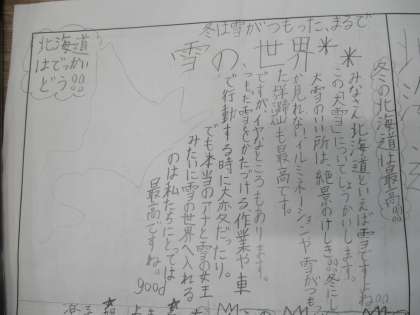 冬は雪がつもった、まるで
雪の世界
北海道
はでっかい
どう
冬の北海道は最高
みなさん北海道といえば雪ですよね
この「大雪」についてしょうかいします。
大雪のいい所は絶景のけしき 冬にし
か見れないイルミネーションや雪がつもっ
た羊蹄山も最高です。
ですがイヤなところもあります。
つもった雪をかたづける作業や車
で行動する時に大変だったり。
でも本当のアナと雪の女王
みたいに雪の世界へ入れる
のは私たちにとっては
最高ですね。
good